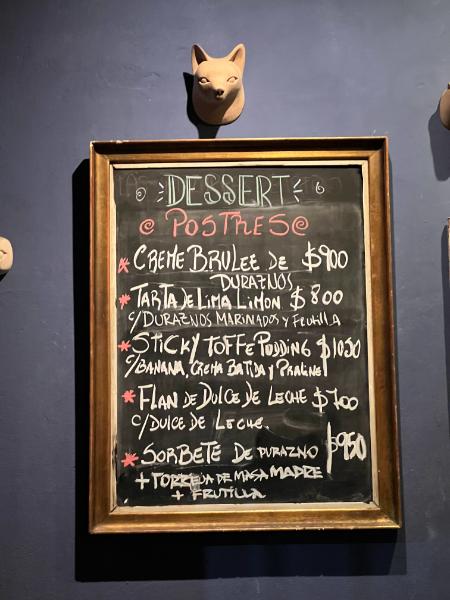 DESSERT
POSTRES
CREME BRULEE DE $900
DURAZNOS
TARTA DE LIMA LIMON $800
C/DURAZNOS MARINADOS Y FRUTILLA
STICKY TOFFE PUDDING $1050
C/BANANA, CREMA BATIDA Y PRALINE
FLAN DE DULCE DE LECHE $700
C/DULCE DE LECHE.
SORBETE DE DURAZNO $950
+ TORREJA DE MASA MADRE
+ FRUTILLA